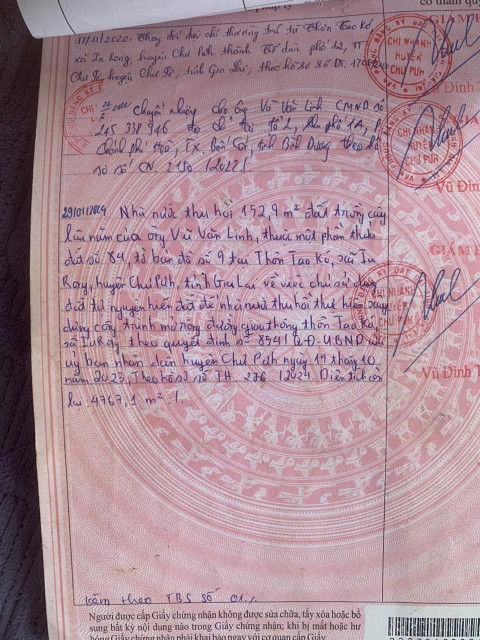 có thẩm quy
17/11/2020, Thay đổi địa chỉ thường trú từ Thôn Tao Kó,
xã Ia Rong, huyện Chư Pưh thành Tổ dân phố 12, TT
Chư Sê, huyện Chư Sê, tỉnh Gia Lai, theo hồ sơ số
GIÁM
CHI NHÁNH
HUYỆN
CHƯ PƯH
Vũ Đình
Chuyển nhượng cho ông Vũ Văn Linh CMND số
215 338 946 địa chỉ tại tổ 2, khu phố 1A, P
Chánh phú Hòa, TX, Bến Cát, tỉnh Bình Dương theo hồ
sơ số CN. 2180 /2022/.
CHI NHÁNH
HUYỆN
CHƯ PƯH
Vũ Đìn
29/01/2024 Nhà nước thu hồi 152,9 m² đất trồng cây
lâu năm của ông Vũ Văn Linh, thuộc một phần thửa
đất số 84, tờ bản đồ số 9 tại Thôn Tao Kó, xã Ia
Rong, huyện Chư Pưh, tỉnh Gia Lai về việc chủ sử dụng
đất tự nguyện hiến đất để nhà nước thu hồi thực hiện xây
dựng công trình mở rộng đường giao thông thôn Tao Kó,
xã Ia Rong theo quyết định số 854/QĐ-UBND của
ủy ban nhân dân huyện Chư Pưh ngày 19 tháng 10
năm 2023, Theo hồ sơ số TH. 276 /2024. Diện tích còn
lại 4767,1 m² /.
GIÁM
CHI NHÁNH
HUYỆN
CHƯ PƯH
Vũ Đình T
Kèm theo TBS số 01/.
Người được cấp Giấy chứng nhận không được sửa chữa, tẩy xóa hoặc bổ
sung bất kỳ nội dung nào trong Giấy chứng nhận; khi bị mất hoặc hư
hỏng Giấy chứng nhận phải khai báo ngay với cơ quan cấp Giấy.